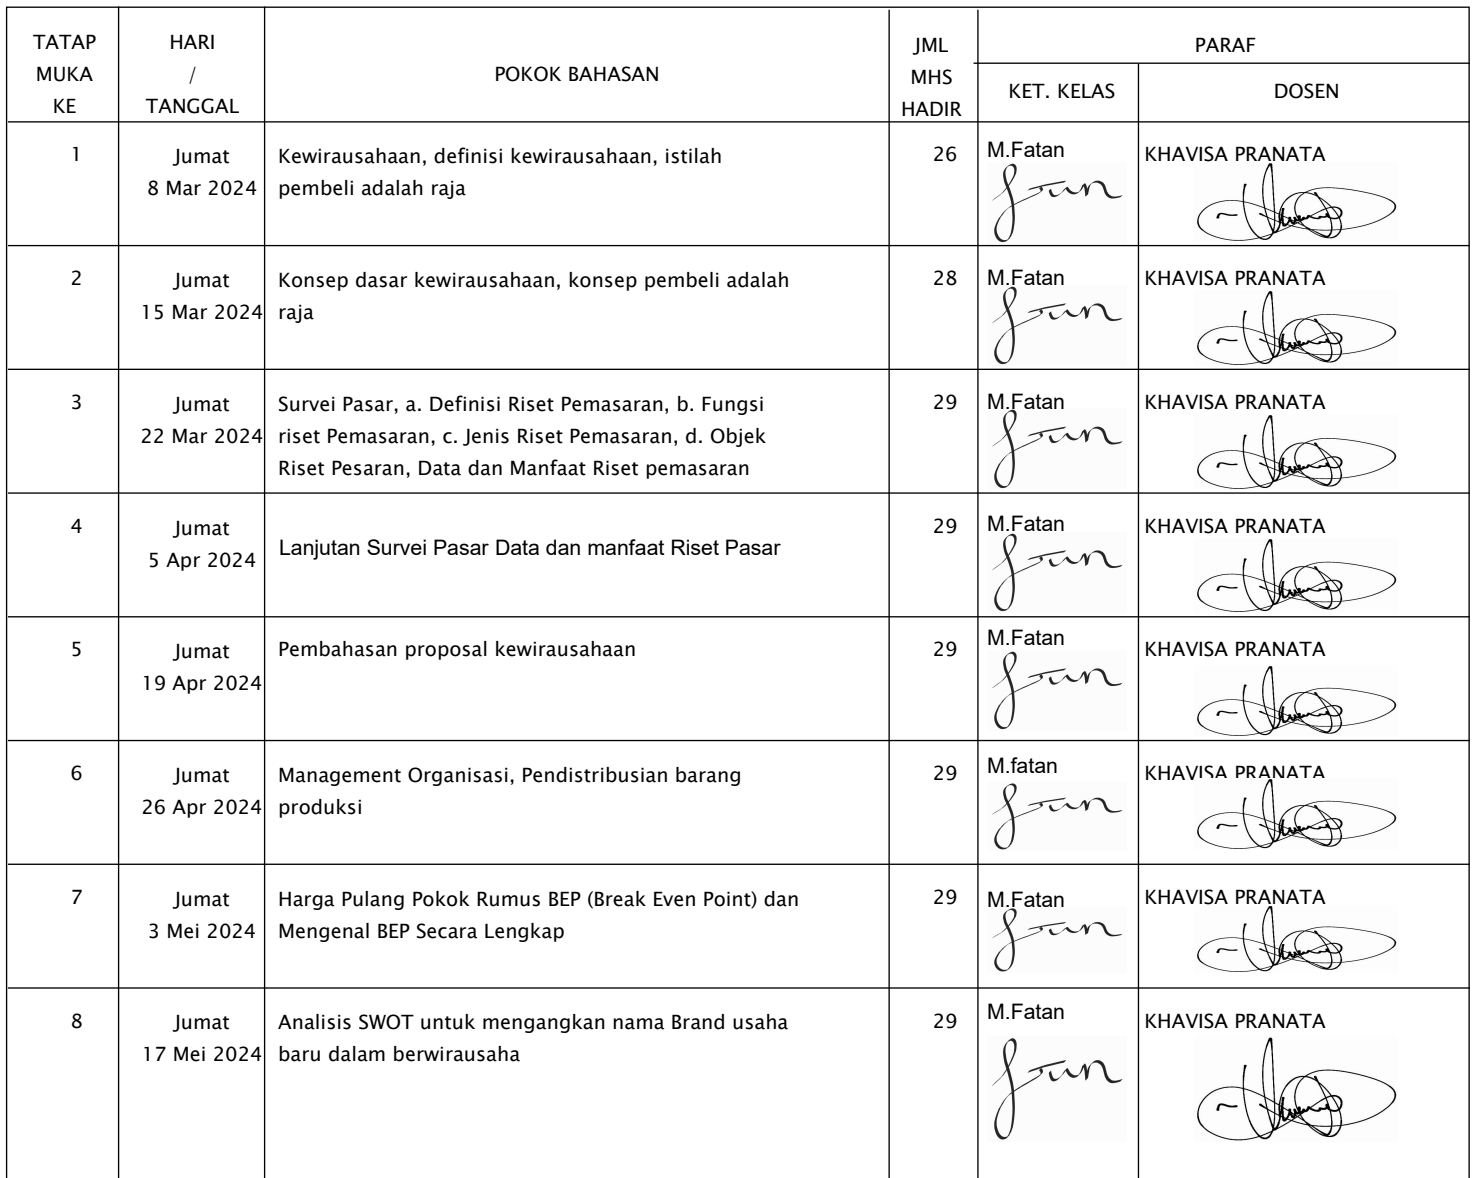 TATAP
MUKA
KE
HARI
/
TANGGAL
POKOK BAHASAN
JML
MHS
HADIR
PARAF
KET. KELAS
DOSEN
1
Jumat
8 Mar 2024
Kewirausahaan, definisi kewirausahaan, istilah
pembeli adalah raja
26
M.Fatan
KHAVISA PRANATA
2
Jumat
15 Mar 2024
Konsep dasar kewirausahaan, konsep pembeli adalah
raja
28
M.Fatan
KHAVISA PRANATA
3
Jumat
22 Mar 2024
Survei Pasar, a. Definisi Riset Pemasaran, b. Fungsi
riset Pemasaran, c. Jenis Riset Pemasaran, d. Objek
Riset Pesaran, Data dan Manfaat Riset pemasaran
29
M.Fatan
KHAVISA PRANATA
4
Jumat
5 Apr 2024
Lanjutan Survei Pasar Data dan manfaat Riset Pasar
29
M.Fatan
KHAVISA PRANATA
5
Jumat
19 Apr 2024
Pembahasan proposal kewirausahaan
29
M.Fatan
KHAVISA PRANATA
6
Jumat
26 Apr 2024
Management Organisasi, Pendistribusian barang
produksi
29
M.fatan
KHAVISA PRANATA
7
Jumat
3 Mei 2024
Harga Pulang Pokok Rumus BEP (Break Even Point) dan
Mengenal BEP Secara Lengkap
29
M.Fatan
KHAVISA PRANATA
8
Jumat
17 Mei 2024
Analisis SWOT untuk mengangkan nama Brand usaha
baru dalam berwirausaha
29
M.Fatan
KHAVISA PRANATA